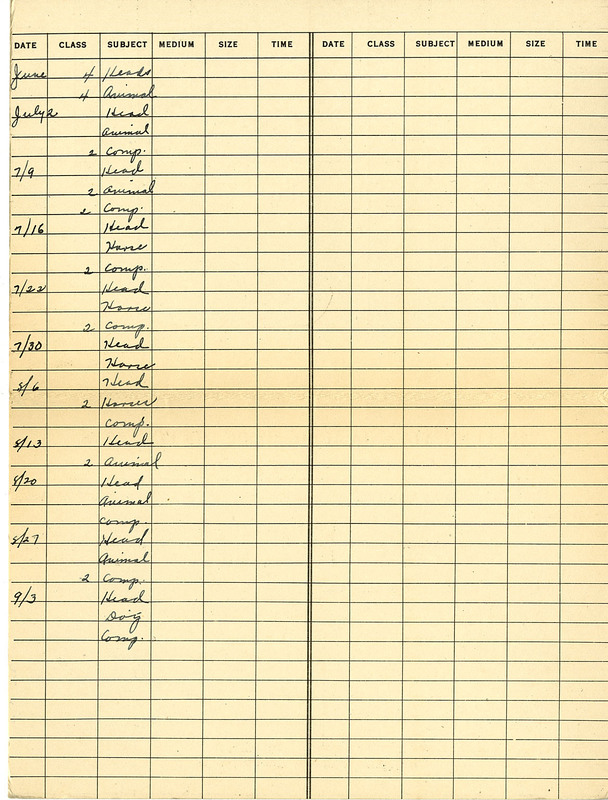 DATE CLASS SUBJECT MEDIUM SIZE TIME DATE CLASS SUBJECT MEDIUM SIZE TIME
June 4 Heads
4 Animal
July 2 Head
Animal
2 Comp.
7/9 Head
2 Animal
2 Comp.
7/16 Head
Horse
2 Comp.
7/22 Head
Horse
2 Comp.
7/30 Head
Horse
8/6 Head
2 Horses
Comp.
8/13 Head
2 Animal
8/20 Head
Animal
Comp.
8/27 Head
Animal
2 Comp.
9/3 Head
Dog
Comp.